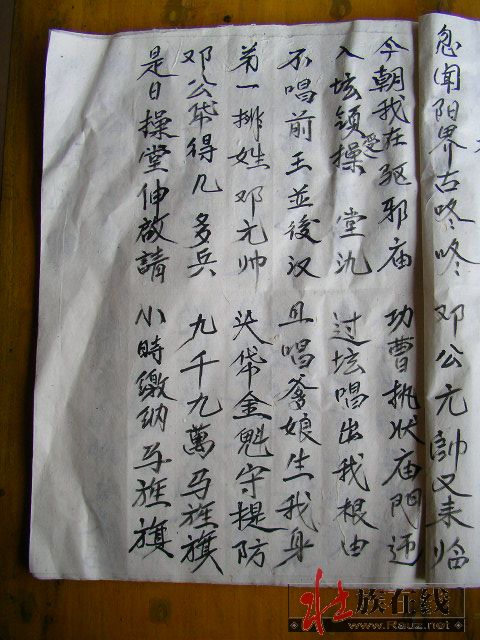 忽闻阳界古咚咚 邓公元帥又来临
今朝我在驱邪庙 功曹执状庙门迊
入坛领操受堂氿 过坛唱出我根由
不唱前王並後汉 且唱爹娘生我身
弟一排姓邓元帅 头帒金魁守提防
邓公帒得几多兵 九千九萬马旌旗
是日操堂伸啟請 小時繳纳马旌旗
壮族在线
www.Rauz.net